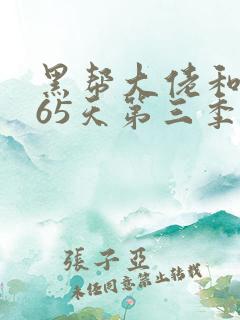 黑帮大佬和
65天第三季
張子亞
未经同意禁止转载